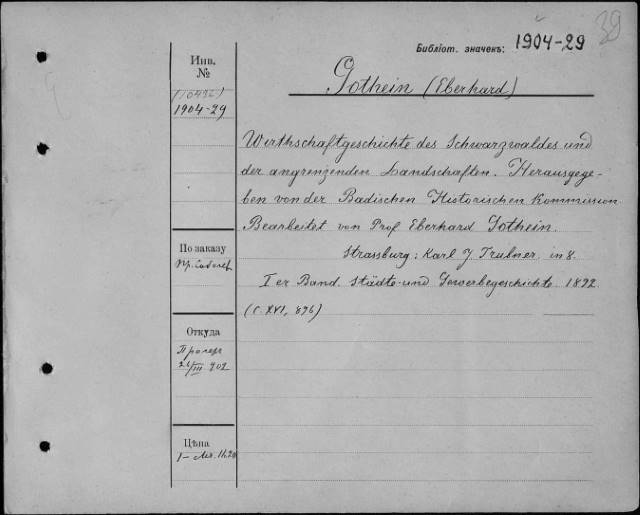 39
Библіот. значекъ: 1904-29
Инв.
№
(10436)
1904-29
Gothein (Eberhard)
Wirthschaftgeschichte des Schwarzwaldes und
der angrenzenden Landschaften. Herausgege-
ben von der Badischen Historischen Kommission
Bearbeitet von Prof Eberhard Gothein.
Strassburg: Karl J. Trübner. in 8.
Ier Band. Städte-und Gewerbegeschichte. 1892
(C. XVI, 896)
По заказу
пр. Соболев
Откуда
III 902
Цѣна
1-